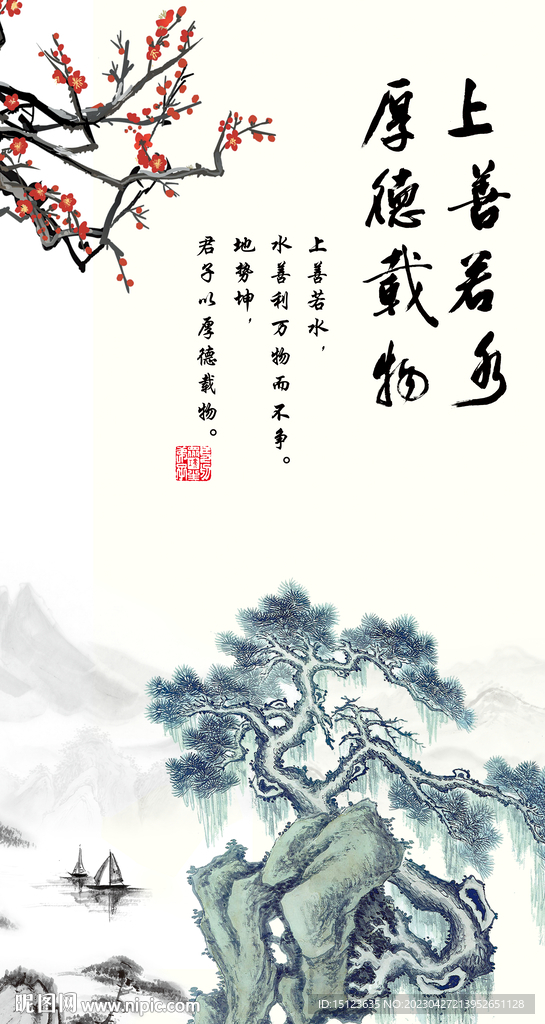 上善若水
厚德载物
上善若水，
水善利万物而不争。
地势坤，
君子以厚德载物。
昵图网 www.nipic.com
ID:15123635 NO:20230427213952651128